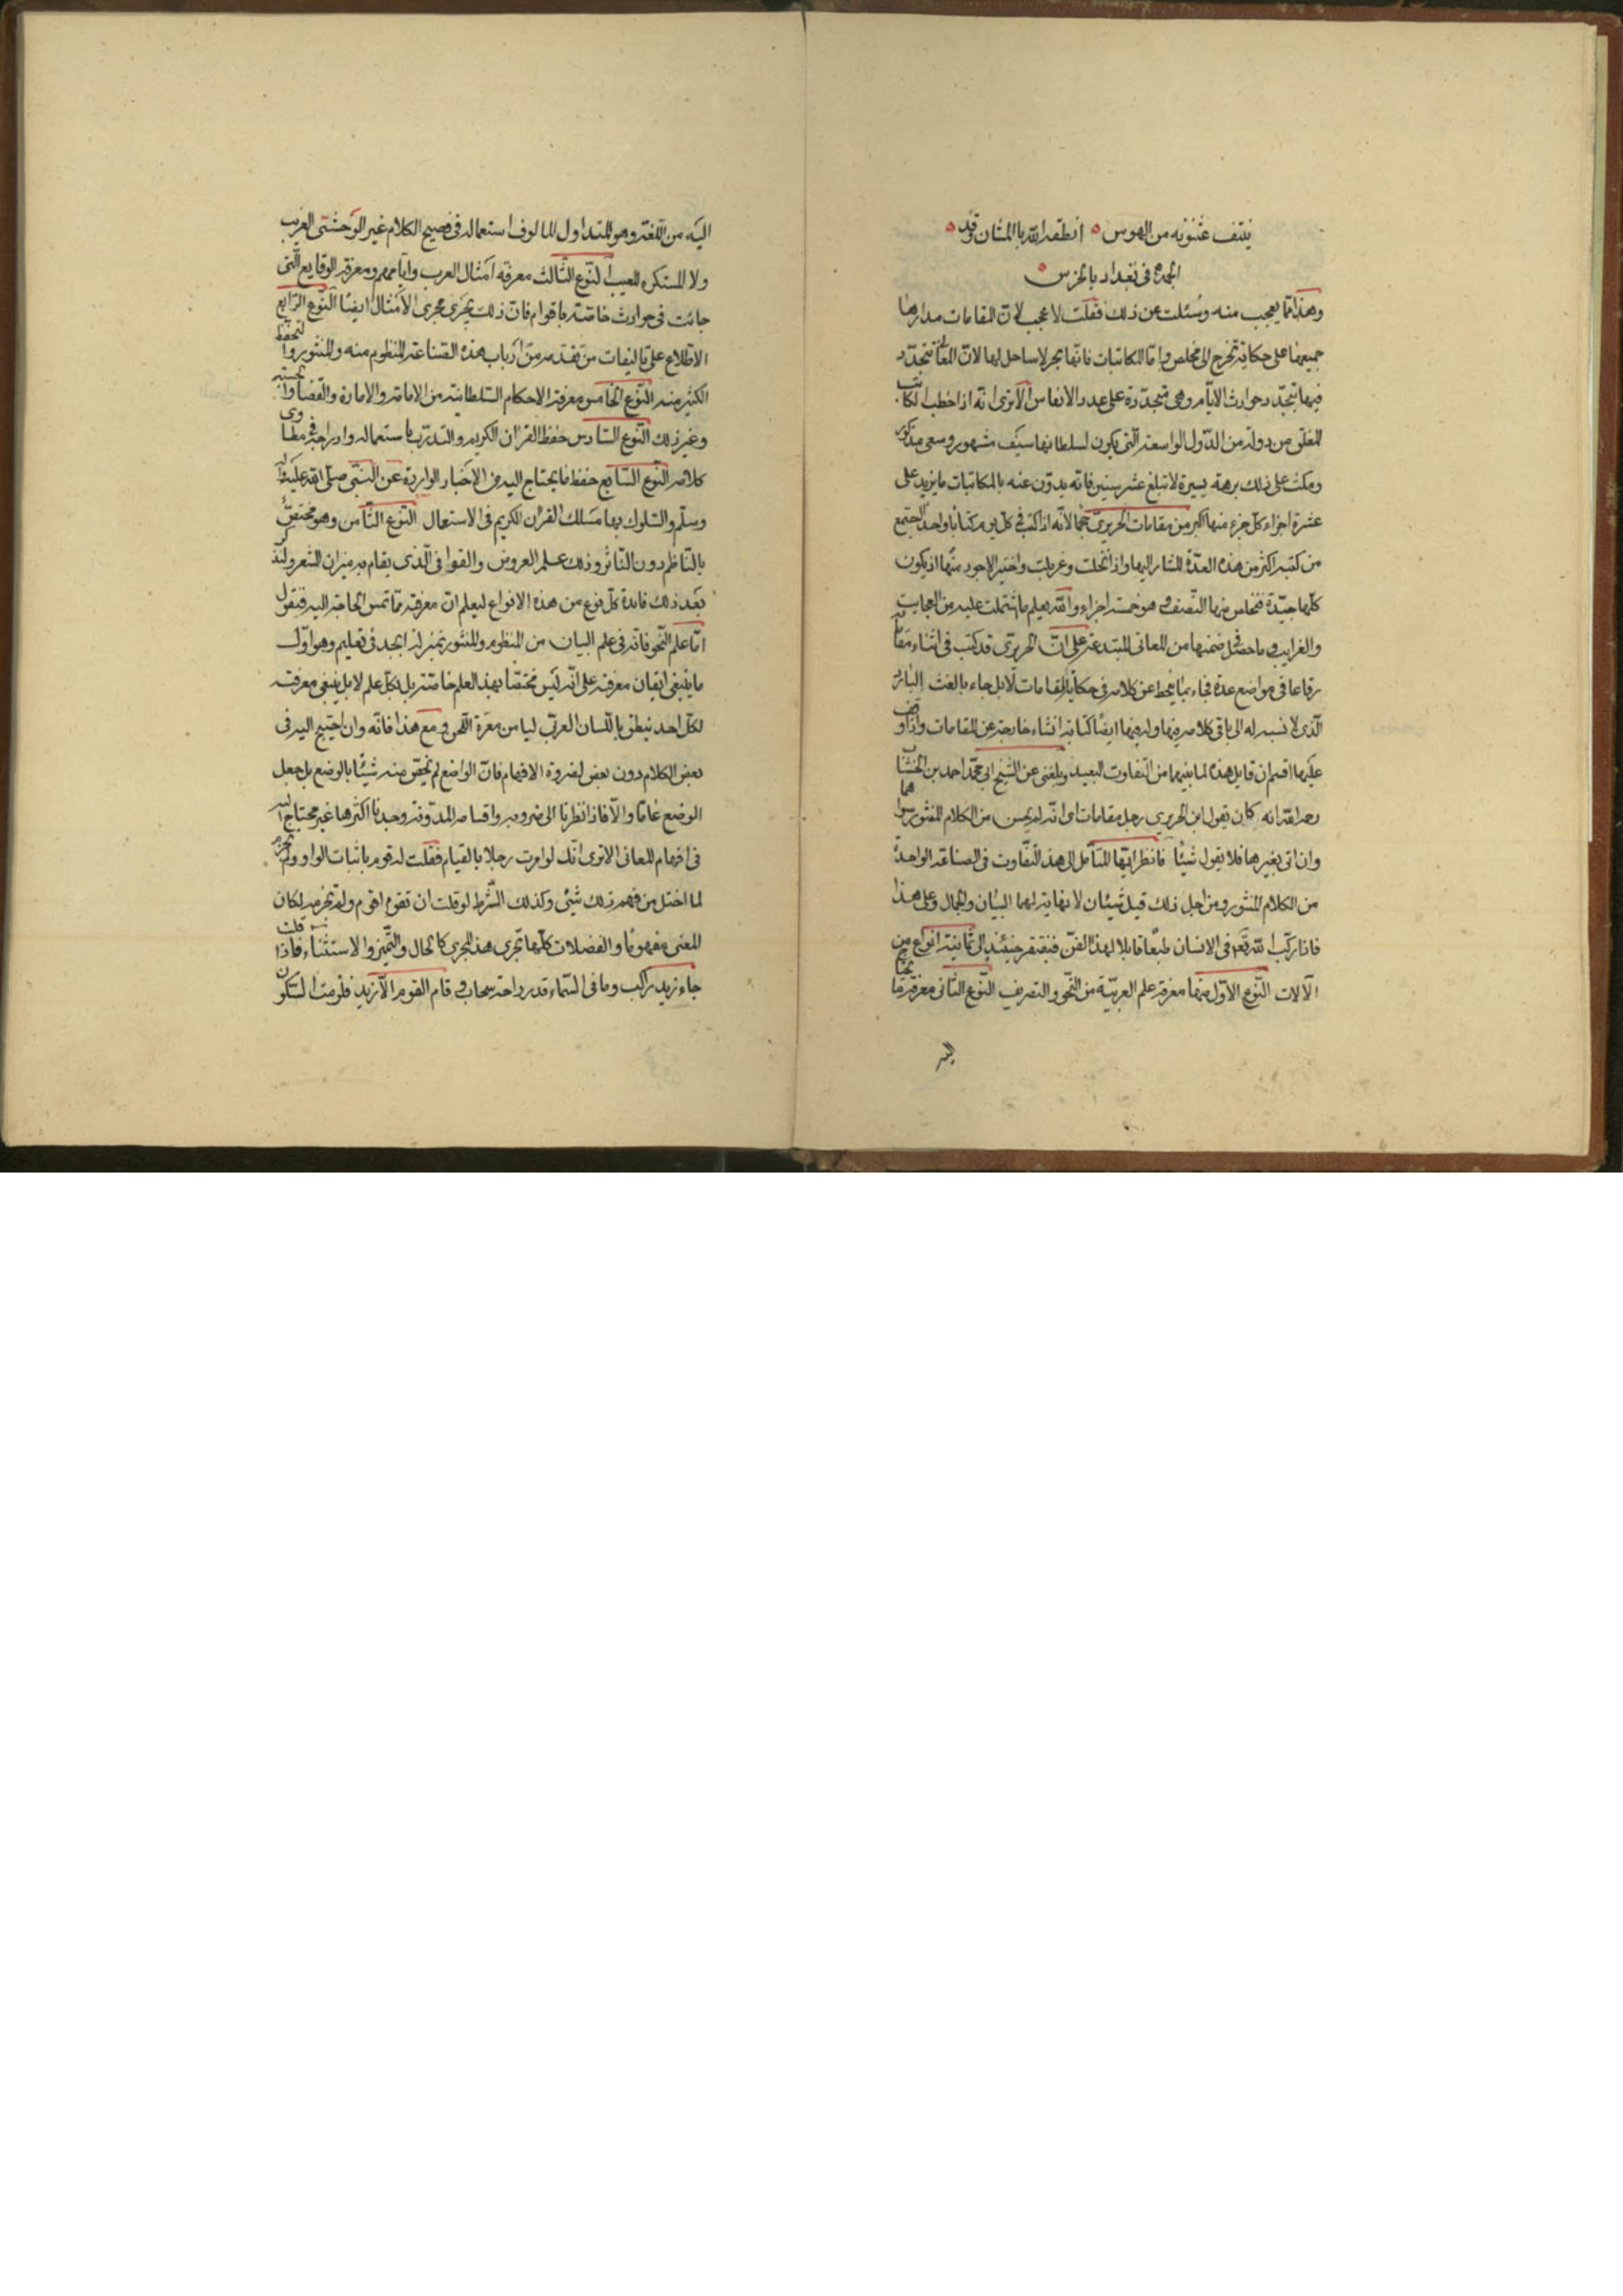 ينتف عثنونه من الهوس ۵ انطقه الله بالمشان وقد ۵
الجمه فى بغداد بالخرس ۵
وهذا مما يعجب منه وسئلت عن ذلك فقلت لا عجب لان المقامات مدارها
جميعها على حكاية تخرج الى مخلص واما المكاتبات فانها بحر لا ساحل لها لان المعانى تتجدد
فيها بتجدد حوادث الايام وهى متجددة على عدد الانفاس الا ترى انه اذا خطب الكاتب
المفلق من دولة من الدول الواسعة التى يكون لسلطانها سيف مشهور وسعى مذكور
ومكث على ذلك برهة يسيرة لا تبلغ عشر سنين فانه يدون عنه بالمكاتبات ما يزيد على
عشرة اجزاء كل جزء منها اكبر من مقامات الحريرى حجما لانه اذا كتب فى كل يوم كتابا واحدا اجتمع
من كتبه اكثر من هذه العدة المشار اليها واذا نخلت وغربلت واختير الاجود منها اذ يكون
كلها جيدة فتخلص منها النصف وهو خمسة اجزاء والله يعلم ما اشتملت عليه من العجايب
والغرايب وما حصل فى ضمنها من المعانى المبتدعة على ان الحريرى قد كتب فى اثناء مقاماته
رقاعا فى مواضع عدة فجاء بها ينحط عن كلامه فى حكاية المقامات لا بل جاء بالغث البارد
الذى لا نسبة له الى باقى كلامه فيها وله فيها ايضا كتابة انشاء خارجة عن المقامات واذا وقف
عليها اقسم ان قايل هذه لما بينهما من التفاوت البعيد وبلغنى عن الشيخ ابى محمد احمد بن الخشاب
رحمه الله انه كان يقول ابن الحريرى رجل مقامات اى انه لم يحسن من الكلام المنثور سواها
وان اتى بغيرها فلا يقول شيئا فانظر ايها المتامل الى هذا التفاوت فى الصناعة الواحدة
من الكلام المنثور ومن اجل ذلك قيل شيئان لا نهاية لهما البيان والجمال وعلى هذا
فاذا ركب الله تعالى فى الانسان طبعا قابلا لهذا الفن فيفتقر حينئذ الى ثمانية انواع من
الآلات النوع الاول منها معرفة علم العربية من النحو والتصريف النوع الثانى معرفة ما يحتاج
اليه
اليه من اللغة وهو المتداول المالوف استعماله فى فصيح الكلام غير الوحشى الغريب
ولا المستكره المعيب النوع الثالث معرفة امثال العرب وايامهم ومعرفة الوقايع التى
جائت فى حوادث خاصة باقوام فان ذلك يجرى مجرى الامثال ايضا النوع الرابع
الاطلاع على تاليفات من تقدمه من ارباب هذه الصناعة المنظوم منه والمنثور والتحفظ
الكثير منه النوع الخامس معرفة الاحكام السلطانية من الامامة والامارة والقضا والحسبة
وغير ذلك النوع السادس حفظ القران الكريم والتدرب باستعماله وادراجه فى مطاوى
كلامه النوع السابع حفظ ما يحتاج اليه من الاخبار الواردة عن النبى صلى الله عليه واله
وسلم والسلوك بها مسلك القران الكريم فى الاستعمال النوع الثامن وهو مختص
بالناظم دون الناثر وذلك علم العروض والقوافى الذى يقام به ميزان الشعر ولنذكر
بعد ذلك فائدة كل نوع من هذه الانواع ليعلم ان معرفته مما تمس الحاجة اليه فنقول
اما علم النحو فانه فى علم البيان من المنظوم والمنثور بمنزلة ابجد فى تعليم وهو اول
ما ينبغى ايقان معرفته على انه ليس مختصا بهذا العلم خاصة بل بكل علم لا بل ينبغى معرفته
لكل احد ينطق باللسان العربى ليامن معرة اللحن ومع هذا فانه وان احتيج اليه فى
بعض الكلام دون بعض لضرورة الافهام فان الواضع لم يخص منه شيئا بالوضع بل جعل
الوضع عاما والا فاذا نظرنا الى ضروبه واقسامه المدونة وجدنا اكثرها غير محتاج اليه
فى افهام المعانى الا ترى انك لو امرت رجلا بالقيام فقلت له قوم باثبات الواو ولم تجزم
لما اختل من فهم ذلك شئ وكذلك الشرط لو قلت ان تقوم اقوم ولم تجزم لكان
المعنى مفهوما والفضلات كلها تجرى هذا المجرى كالحال والتميز والاستثناء فاذا قلت
جاء زيد راكب وما فى السماء قدر راحة سحاب وقام القوم الا زيد فلزمت السكون